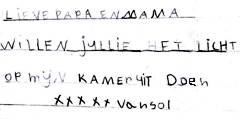 LIEVE PAPA EN MAMA
WILLEN jullie HET LICHT
OP mijN KAMER uit Doen
xxxxx vansol